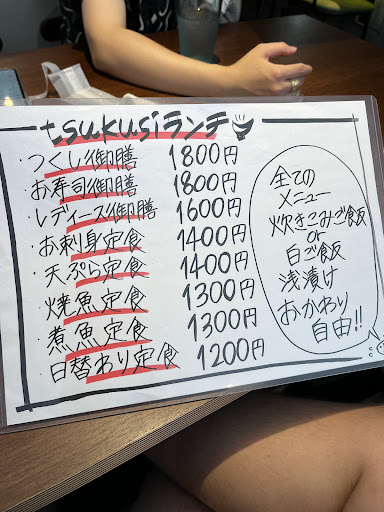 tsukusiランチ
・つくし御膳 1800円
・お寿司御膳 1800円
・レディース御膳 1600円
・お刺身定食 1400円
・天ぷら定食 1400円
・焼魚定食 1300円
・煮魚定食 1300円
・日替わり定食 1200円
全ての
メニュー
炊きこみご飯
or
白ご飯
浅漬け
おかわり
自由!!